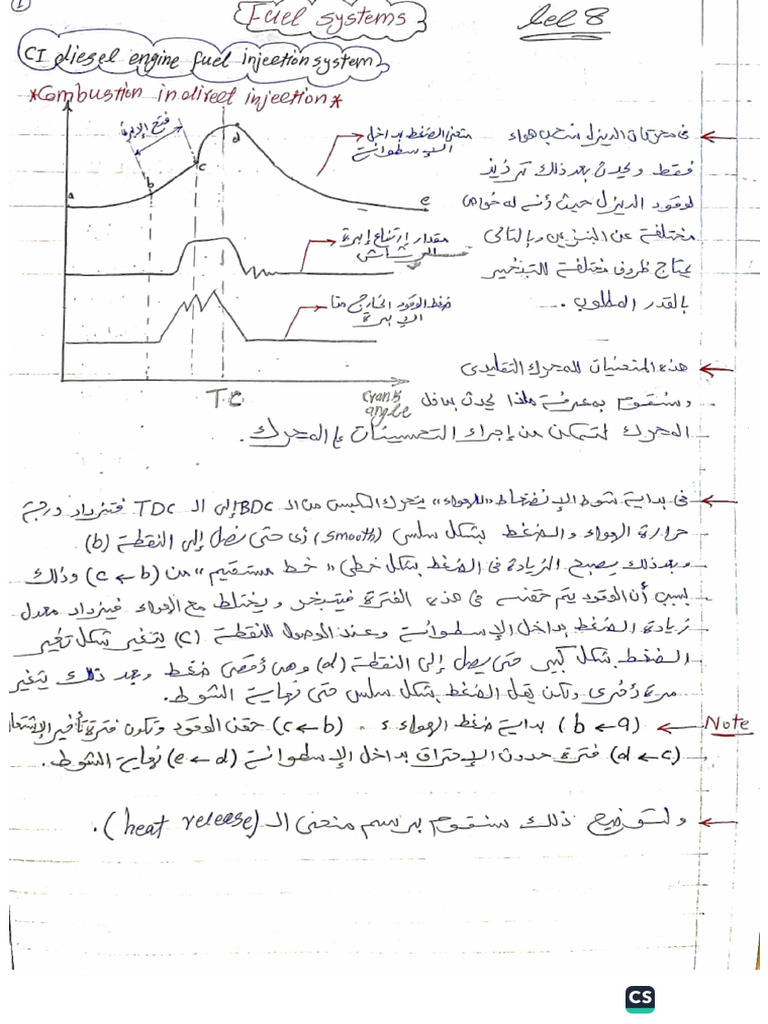 1
Fuel systems
Lec 8
CI diesel engine fuel injection system
*Combustion in direct injection*
فى محركات الديزل نسحب هواء
فقط و يحدث بعد ذلك تذرير
لوقود الديزل حيث أنه له خواص
مختلفة عن البنزين وبالتالى
يحتاج ظروف مختلفة للتبخير
بالقدر المطلوب .
فتح الإبرة
منحنى الضغط بداخل
الاسطوانة
مقدار إرتفاع إبرة
الرشاش
ضغط الوقود الخارج من
الإبرة
a
b
c
d
e
T.C
crank
angle
هذه المنحنيات للمحرك التقليدى
وسنقوم بمعرفة ماذا يحدث بداخل
المحرك لنتمكن من إجراء التحسينات على المحرك .
فى بداية شوط الإنضغاط "للهواء" يتحرك المكبس من الـ BDC إلى الـ TDC فتزداد درجة
حرارة الهواء والضغط بشكل سلس (smooth) أى حتى نصل إلى النقطة (b)
وبعد ذلك يصبح الزيادة فى الضغط بشكل خطى "خط مستقيم" من (c ← b) وذلك
بسبب أن الوقود يتم حقنه فى هذه الفترة فيتبخر ويختلط مع الهواء فيزداد معدل
زيادة الضغط بداخل الإسطوانة وعند الوصول للنقطة (c) يتغير شكل تغير
الضغط بشكل كبير حتى يصل إلى النقطة (d) وهى أقصى ضغط وبعد ذلك يتغير
مرة أخرى ولكن يقل الضغط بشكل سلس حتى نهاية الشوط.
Note → (b ← a) بداية ضغط الهواء ، (c ← b) حقن الوقود وتكون فترة تأخير الإشتعال
(d ← c) فترة حدوث الإحتراق بداخل الإسطوانة (e ← d) نهاية الشوط.
ولتوضيح ذلك سنقوم برسم منحنى الـ (heat release).
CS